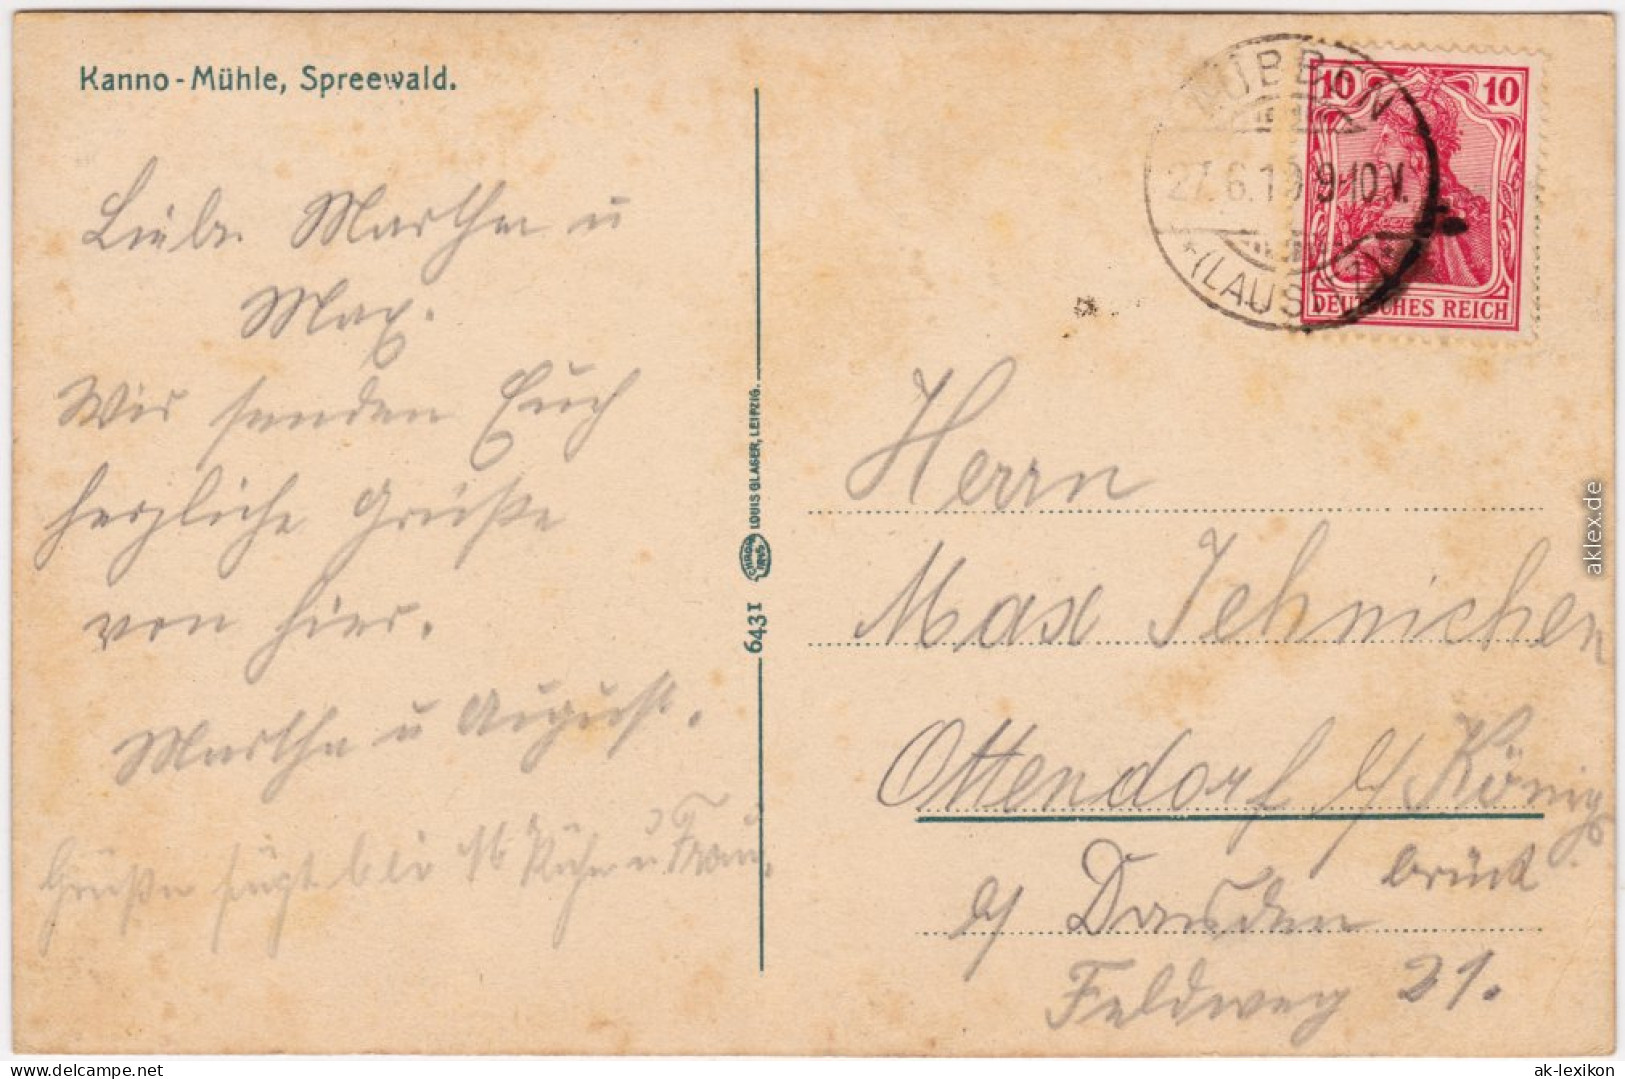 Kanno-Mühle, Spreewald.
Liebe Martha u
Max.
Wir senden Euch
herzliche Grüße
von hier.
Martha u August.
Grüße fügt bei
u Frau.
LOUIS GLASER, LEIPZIG.
6431
LÜBBEN
27.6.19 9-10.V.
*(LAUSITZ)*
10 10
DEUTSCHES REICH
Herrn
Max Jehnichen
Ottendorf b/ König
brück
b/ Dresden
Feldweg 21.
aklex.de
www.delcampe.net
ak-lexikon